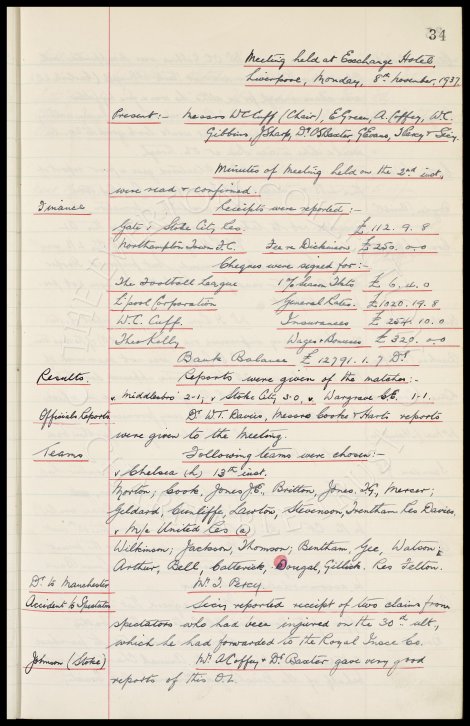 34
Meeting held at Exchange Hotel,
Liverpool, Monday, 8th November, 1937.
Present:- Messrs W.C. Cuff (Chair), E. Green, A. Coffey, W.C.
Gibbins, J. Sharp, Dr. Baxter, G. Evans, T. Percy & Secy.
Minutes of Meeting held on the 2nd inst,
were read & confirmed.
Finance Receipts were reported:-
Gate v Stoke City Res £ 112. 9. 8
Northampton Town F.C. Fee re Dickinson £ 250. 0. 0
Cheques were signed for:-
The Football League 1% Season Tkts £ 6. 4. 0
L'pool Corporation General Rates. £1020. 19. 8
W.C. Cuff. Insurances £ 254. 10. 0
Theo Kelly Wages & Bonuses £ 320. 0. 0
Bank Balance £ 12791. 1. 7 Dr
Results. Reports were given of the matches:-
v. Middlesbro' 2-1, v Stoke City 3.0, v. Wargrave 1-1.
Officials Reports Dr W.T. Davies, Messrs Cooke & Harts reports
were given to the Meeting.
Teams Following teams were chosen:-
v Chelsea (h) 13th inst.
Morton; Cook, Jones J.E., Britton, Jones. T.G., Mercer;
Geldard, Cunliffe, Lawton, Stevenson, Trentham Res Davies.
v M/c United Res (a)
Wilkinson; Jackson, Thomson; Bentham, Gee, Watson;
Arthur, Bell, Catterick, Dougal, Gillick. Res Felton.
Dr. to Manchester Mr. T. Percy
Accident to Spectators Secy reported receipt of two claims from
spectators who had been injured on the 30th ult,
which he had forwarded to the Royal Insce Co.
Johnson (Stoke) Mr A Coffey & Dr Baxter gave very good
reports of this O.L.